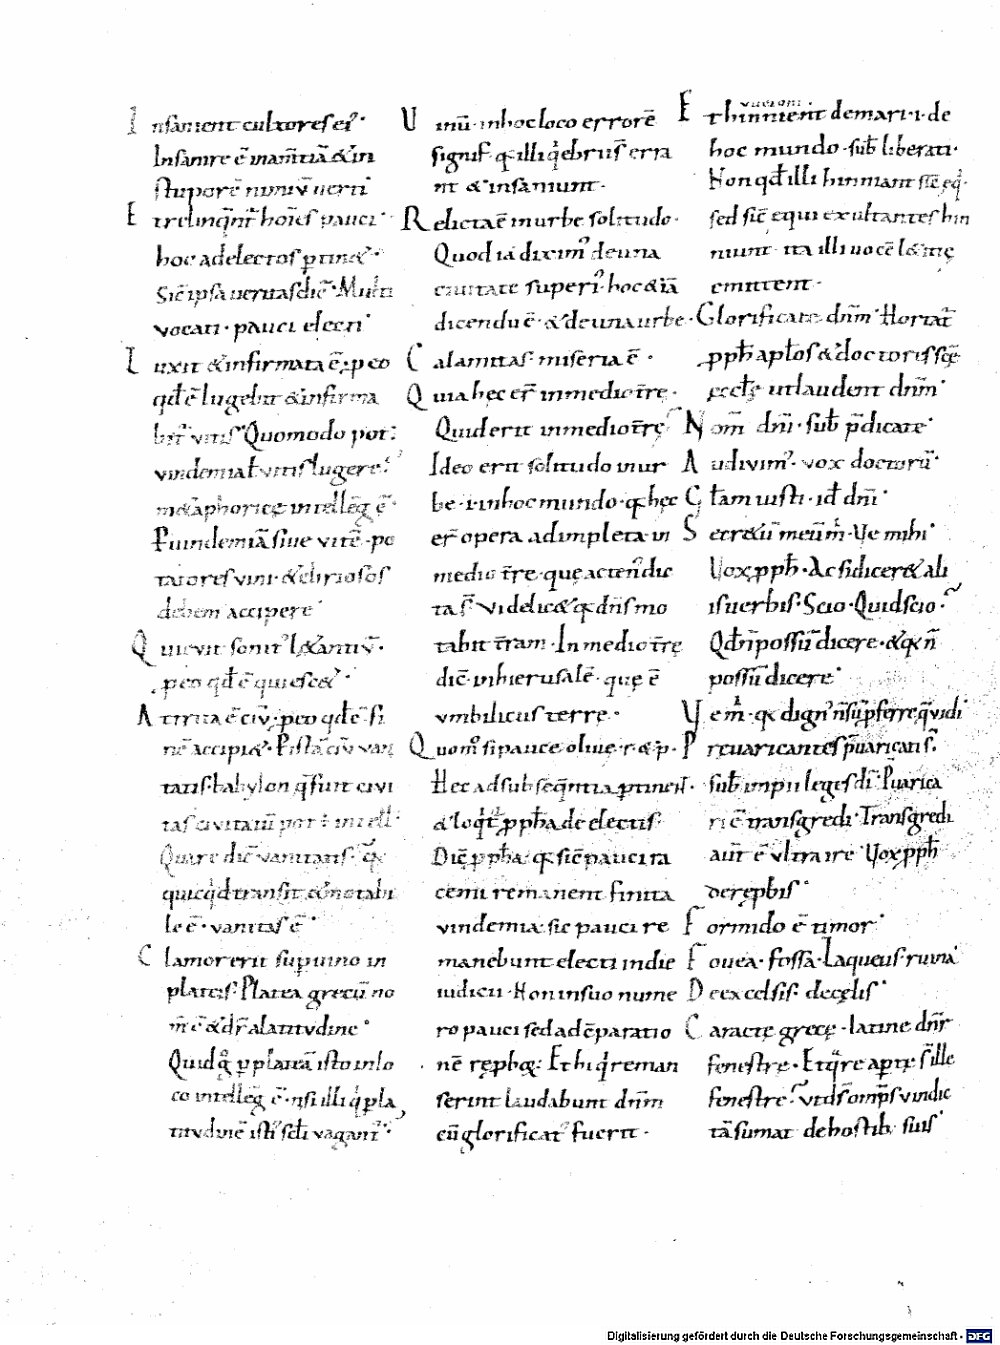 Insanient cultores ei᷒·
Insanire ē inam̄tiā & in
stuporē nimiv̄ uerti·
Et relinq̄nt̄ hoīes pauci·
hoc ad electos ꝑtin&·
Sic̄ ipsa ueritas dic̄· Multi
vocati· pauci electi·
Luxit & infirmata ē· ꝑeo
qd̄ ē lugebit & infirma
bit̄ vitis· Quomodo pot̄
vindemia ł vitis lugere·
m&aphoricę intelleḡ ē·
P uindemiā siue vitē· po
tatores vini· & ebriosos
debem᷒ accipere·
Quieuit sonit᷒ l&antiv̄·
ꝑeo qd̄ ē quiesc&·
Attrita ē civ̄· ꝑeo qd̄ ē· si
nē accipi&· P istā civ̄ van
tatis· babylon q̄ sunt civi
tas civitatū pot̄ intell·
Quare dic̄ vanitatis· q̄
quicq̄d transit & n̄ stabi
le ē· vanitas ē·
Clamor erit sup uino in
plateis· Platea grecū no
m̄ ē & dr̄ a latitvdine·
Quid ꝑ plateā isto in lo
co intelleḡ ē· nisi illi q̄ ꝑ la
titvdinē isti᷒ scłi vagant᷒·
Vinū· in hoc loco errorē
signif· q illi q̄ ebrii s̄ erra
nt & insaniunt·
Relicta ē in urbe solitudo·
Quod iā dixim᷒ de una
ciuitate superi᷒· hoc & iā
dicendū ē· & de una urbe·
Calamitas· miseria ē·
Quia hec er̄ in medio t̄re·
Quid erit in medio t̄rę
Ideo erit solitudo in ur
be· i· in hoc mundo· q hęc
er̄ opera adimpleta in
medio t̄re· quę acten᷒ dic
ta s̄· videlic& q dn̄s mo
tabit t̄ram· In medio t̄rę
dic̄· in hierusalē· quę ē
vmbilicus terrę·
Quom᷒ si pauce oliuę· r· & p·
Hec ad subseq̄ntia ꝑtinent·
& loq̄t̄ ꝓph̄a de electis·
Dic̄ ꝓph̄a· q sic̄ pauci ra
cemi remanent finita
vindemia· sic pauci re
manebunt electi in die
iudicii· Non in suo nume
ro pauci sed ad c̄paratio
nē repbo᷒· Et hi q̄ reman
serint laudabunt dn̄m
cū glorificat᷒ fuerit·
Et hinnient de mari· i· de
hoc mundo· sub̄ liberati·
Non qd̄ illi hinniant sic̄ eq·
sed sic̄ equi exultantes hin
niunt· ita illi uocē l&itię
emittent·
Glorificate dn̄m· Hortat̄
ꝓph̄ apłos & doctores scę
eccłę ut laudent dn̄m·
Nom̄ dn̄i· sub̄ p̄dicate·
Audivim᷒· vox doctorū·
Głam iusti· id̄ dn̄i·
Secr&ū meū m̄· Ve mihi·
Vox ꝓph̄· Ac si dicer& ali
is uerbis· Scio· Quid scio·
Qd̄ n̄ possū dicere· & q n̄
possū dicere·
Ve m̄· q dign᷒ n̄ sū ꝑferre q̄ vidi·
Preuaricantes p̄uaricati s̄·
sub̄ impii leges dī· P̄uarica
ri ē transgredi· Transgredi
aut̄ ē vltra ire· Vox ꝓph̄
de repbis·
Formido ē timor·
Fouea· fossa· Laqueus· ruina·
De excelsis· de cęlis·
Caractę grecę· latine dn̄r
fenestre· Et q̄re aꝑtę s̄ ille
fenestre· vt ds̄ omp̄s vindic
tā sumat de hostib᷒ suis·